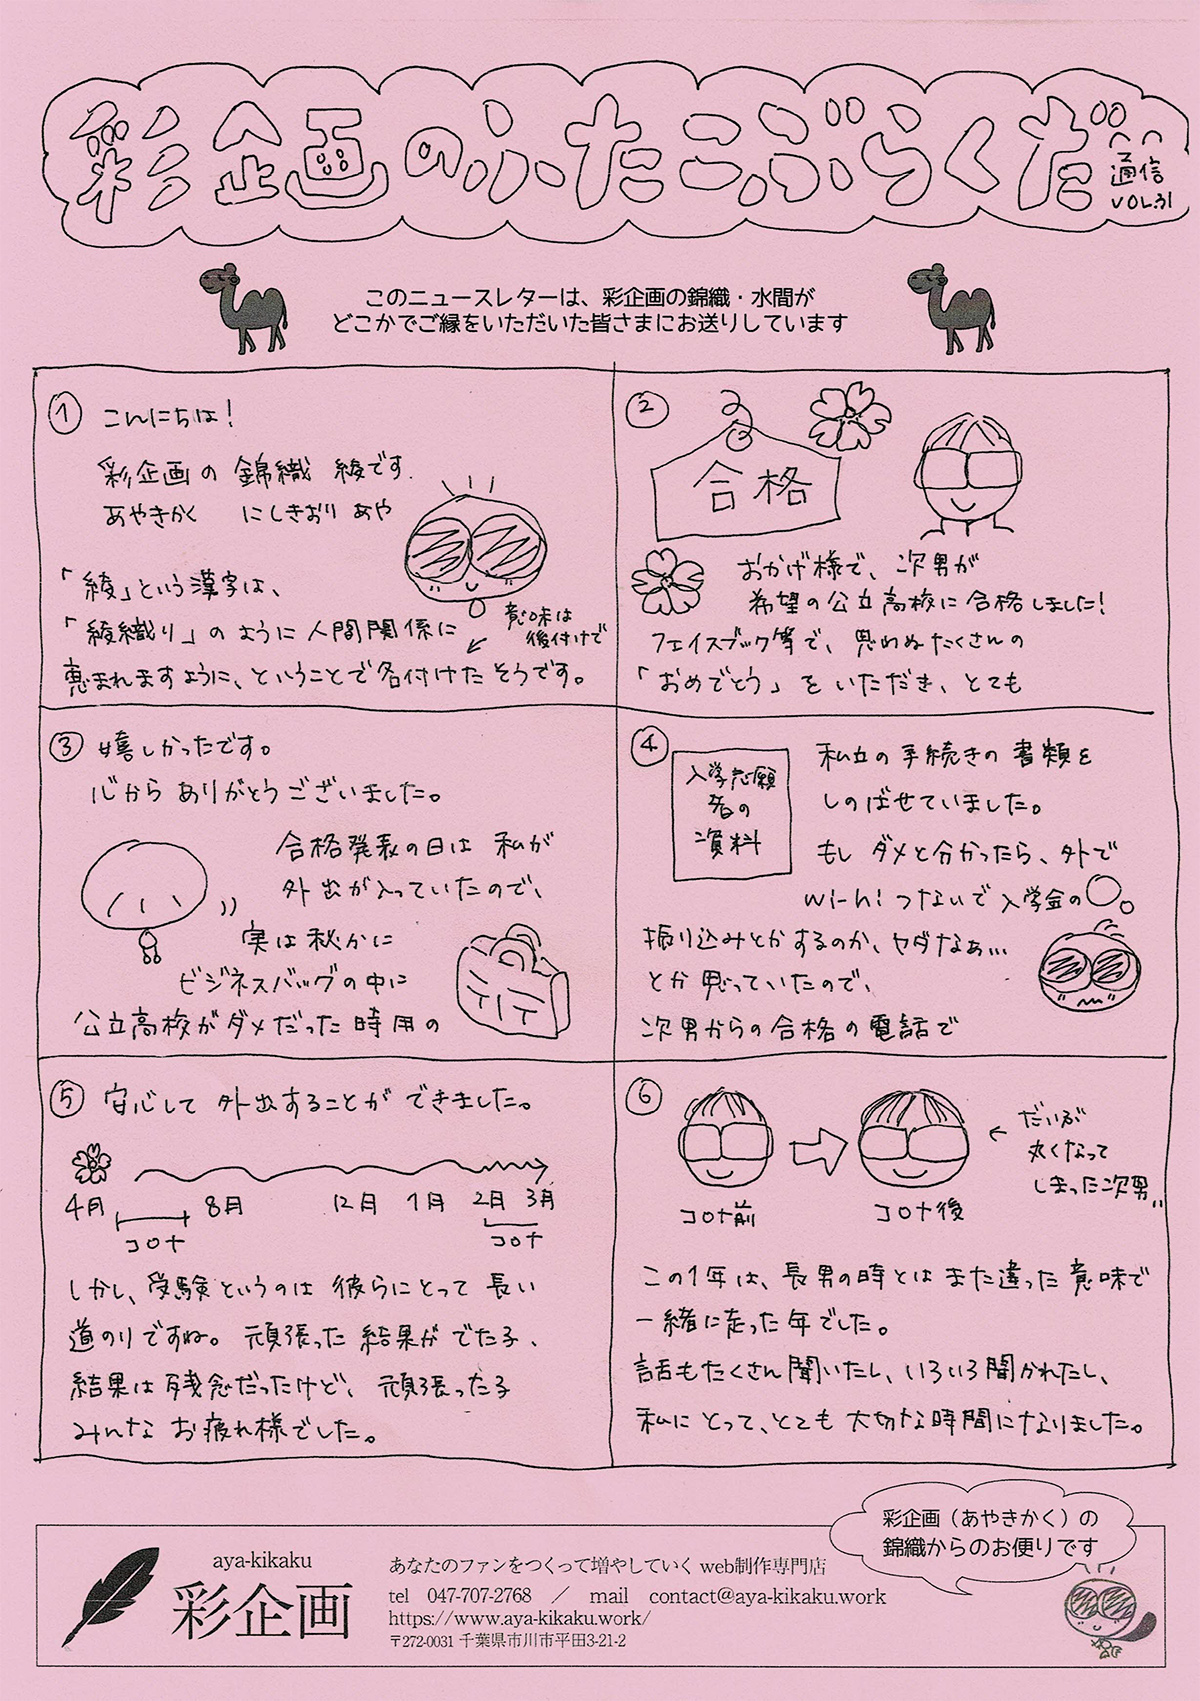 彩企画のふたこぶらくだ
通信
VOL.31
このニュースレターは、彩企画の錦織・水間が
どこかでご縁をいただいた皆さまにお送りしています
① こんにちは!
彩企画の 錦織 綾です.
あやきかく にしきおり あや
「綾」という漢字は、
「綾織り」のように人間関係に
恵まれますように、ということで名付けたそうです。
意味は
後付けで
②
合格
おかげ様で、次男が
希望の公立高校に合格しました!
フェイスブック等で、思わぬたくさんの
「おめでとう」をいただき、とても
③ 嬉しかったです。
心から ありがとうございました。
合格発表の日は 私が
外出が入っていたので、
実は秘かに
ビジネスバッグの中に
公立高校がダメだった時用の
④
入学志願
者の
資料
私立の手続きの書類を
しのばせていました。
もし ダメと分かったら、外で
wi-hi つないで入学金の
振り込みとかするのか、ヤダなぁ...
とか思っていたので、
次男からの合格の電話で
⑤ 安心して 外出することが できました。
4月 8月 12月 1月 2月 3月
コロナ コロナ
しかし、受験というのは 彼らにとって 長い
道のりですね。頑張った 結果が でた子、
結果は残念だったけど、頑張った子
みんな お疲れ様でした。
⑥
コロナ前 コロナ後
だいぶ
丸くなって
しまった次男
この1年は、長男の時とは また違った 意味で
一緒に走った年でした。
話もたくさん聞いたし、いろいろ聞かれたし、
私に とって、とても 大切な時間になりました。
彩企画(あやきかく)の
錦織からのお便りです
aya-kikaku
彩企画
あなたのファンをつくって増やしていく web制作専門店
tel 047-707-2768 / mail contact@aya-kikaku.work
https://www.aya-kikaku.work/
〒272-0031 千葉県市川市平田3-21-2